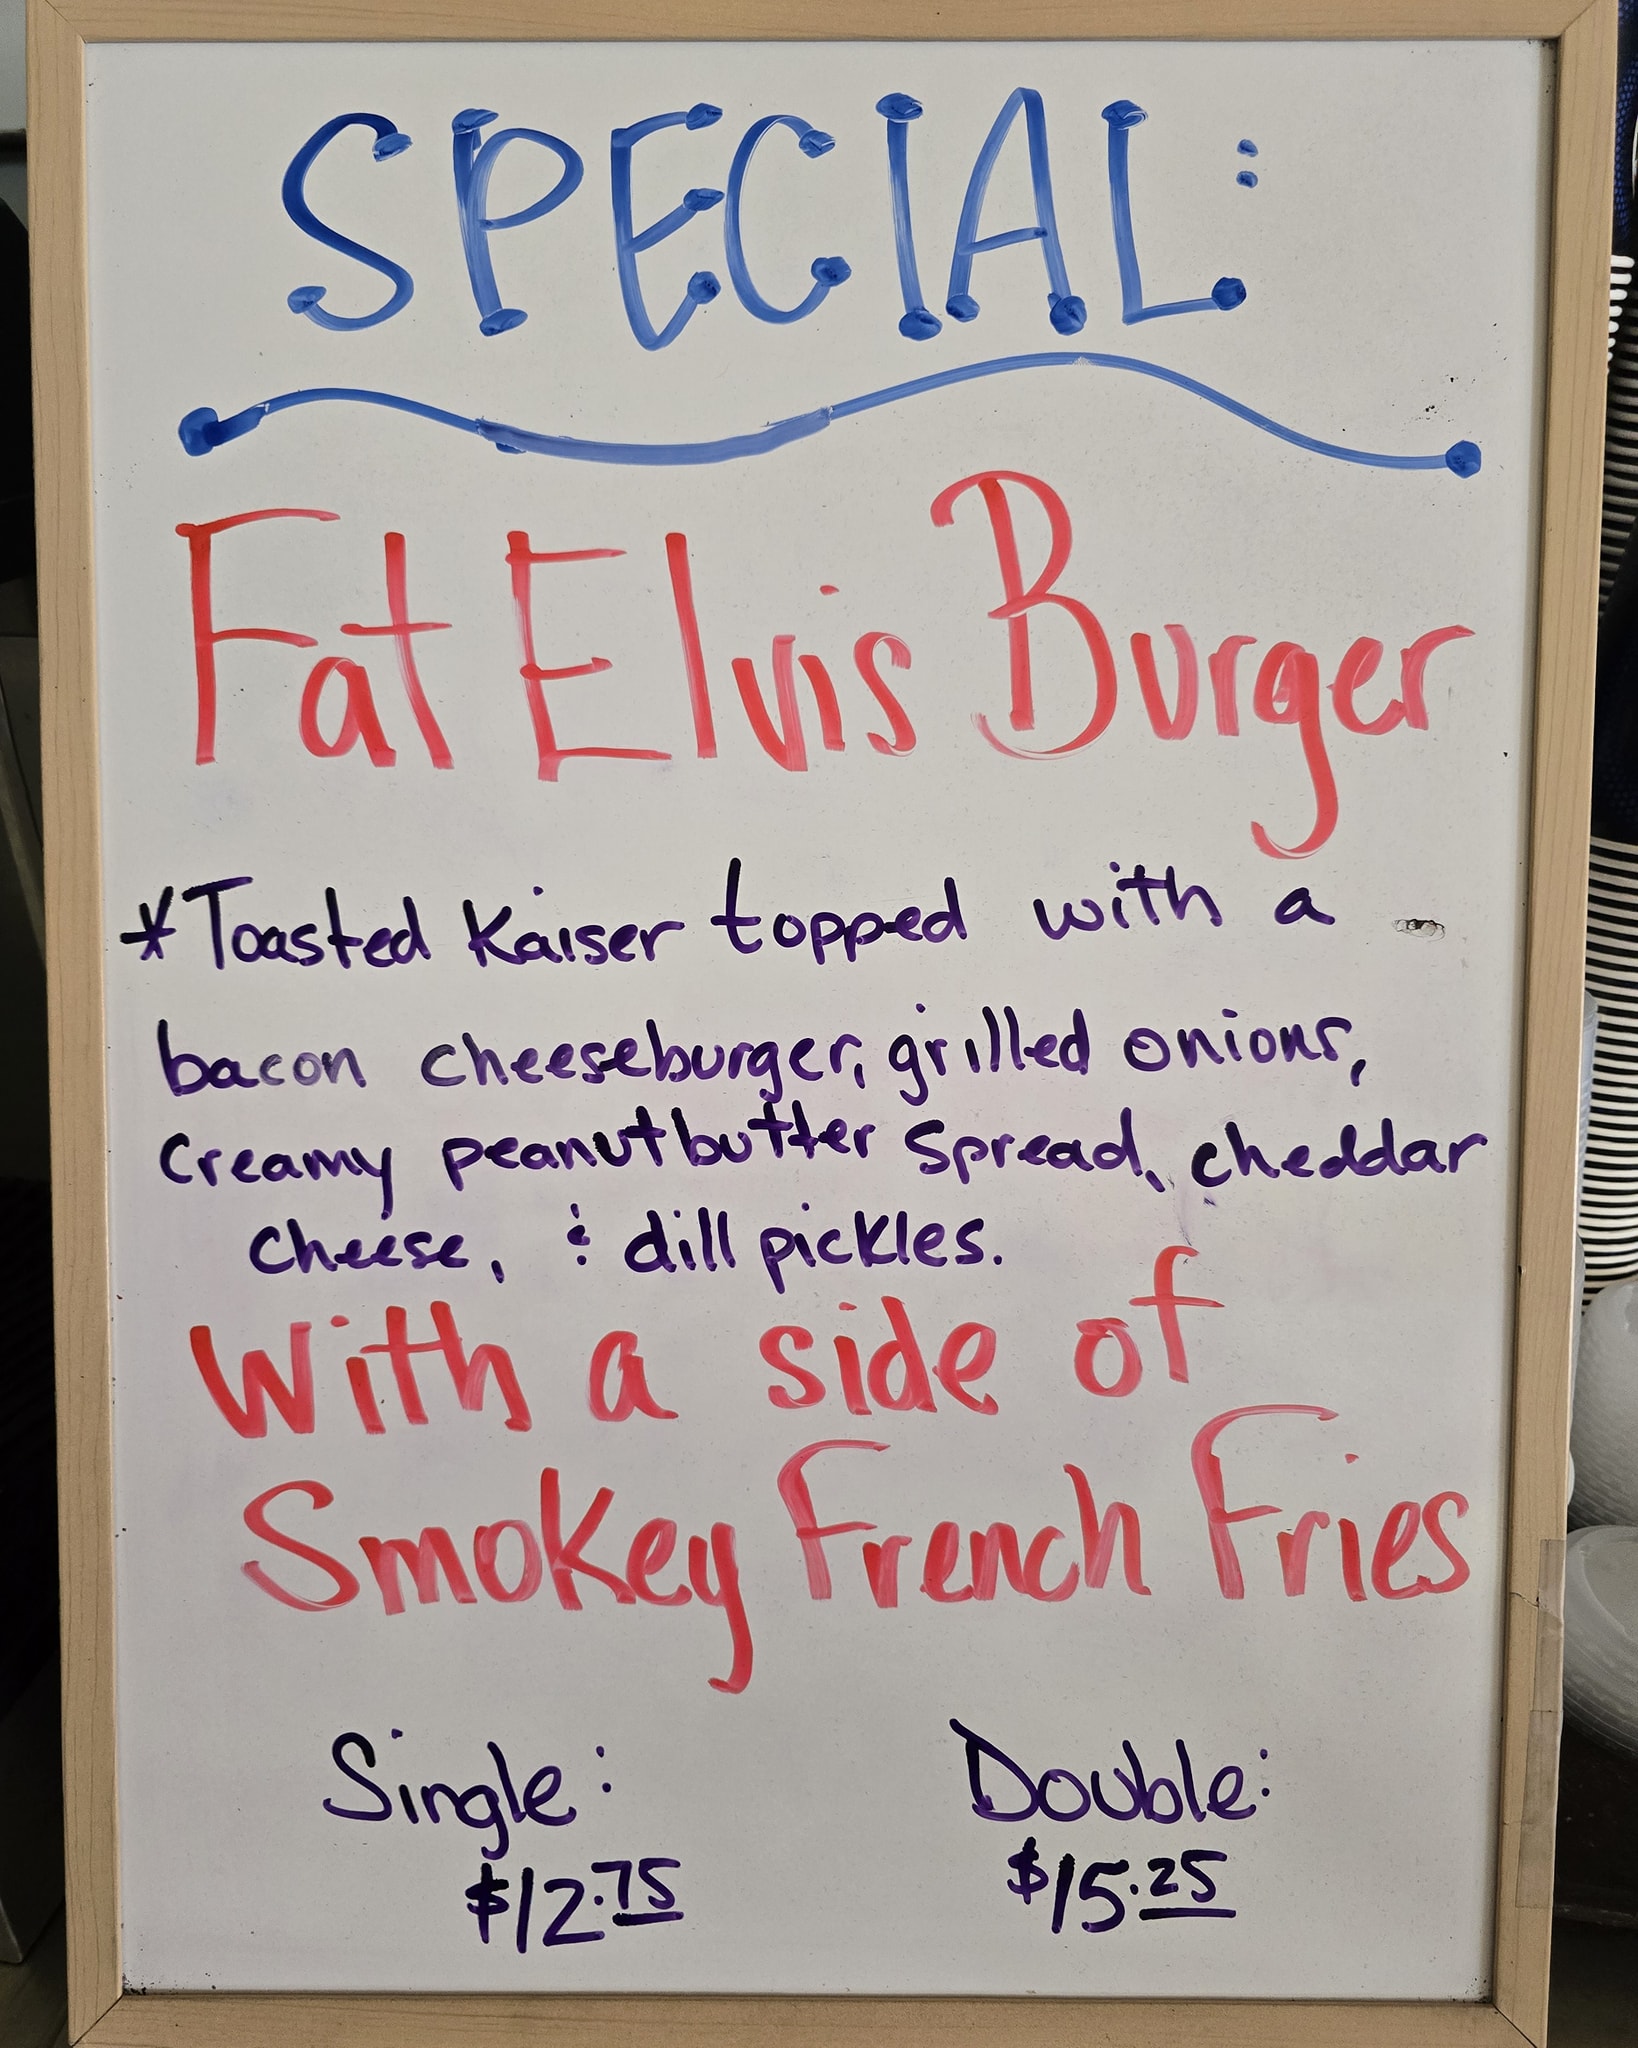 SPECIAL:
Fat Elvis Burger
*Toasted Kaiser topped with a
bacon cheeseburger, grilled onions,
creamy peanutbutter spread, cheddar
cheese, & dill pickles.
With a side of
Smokey French Fries
Single: Double:
$12.75 $15.25